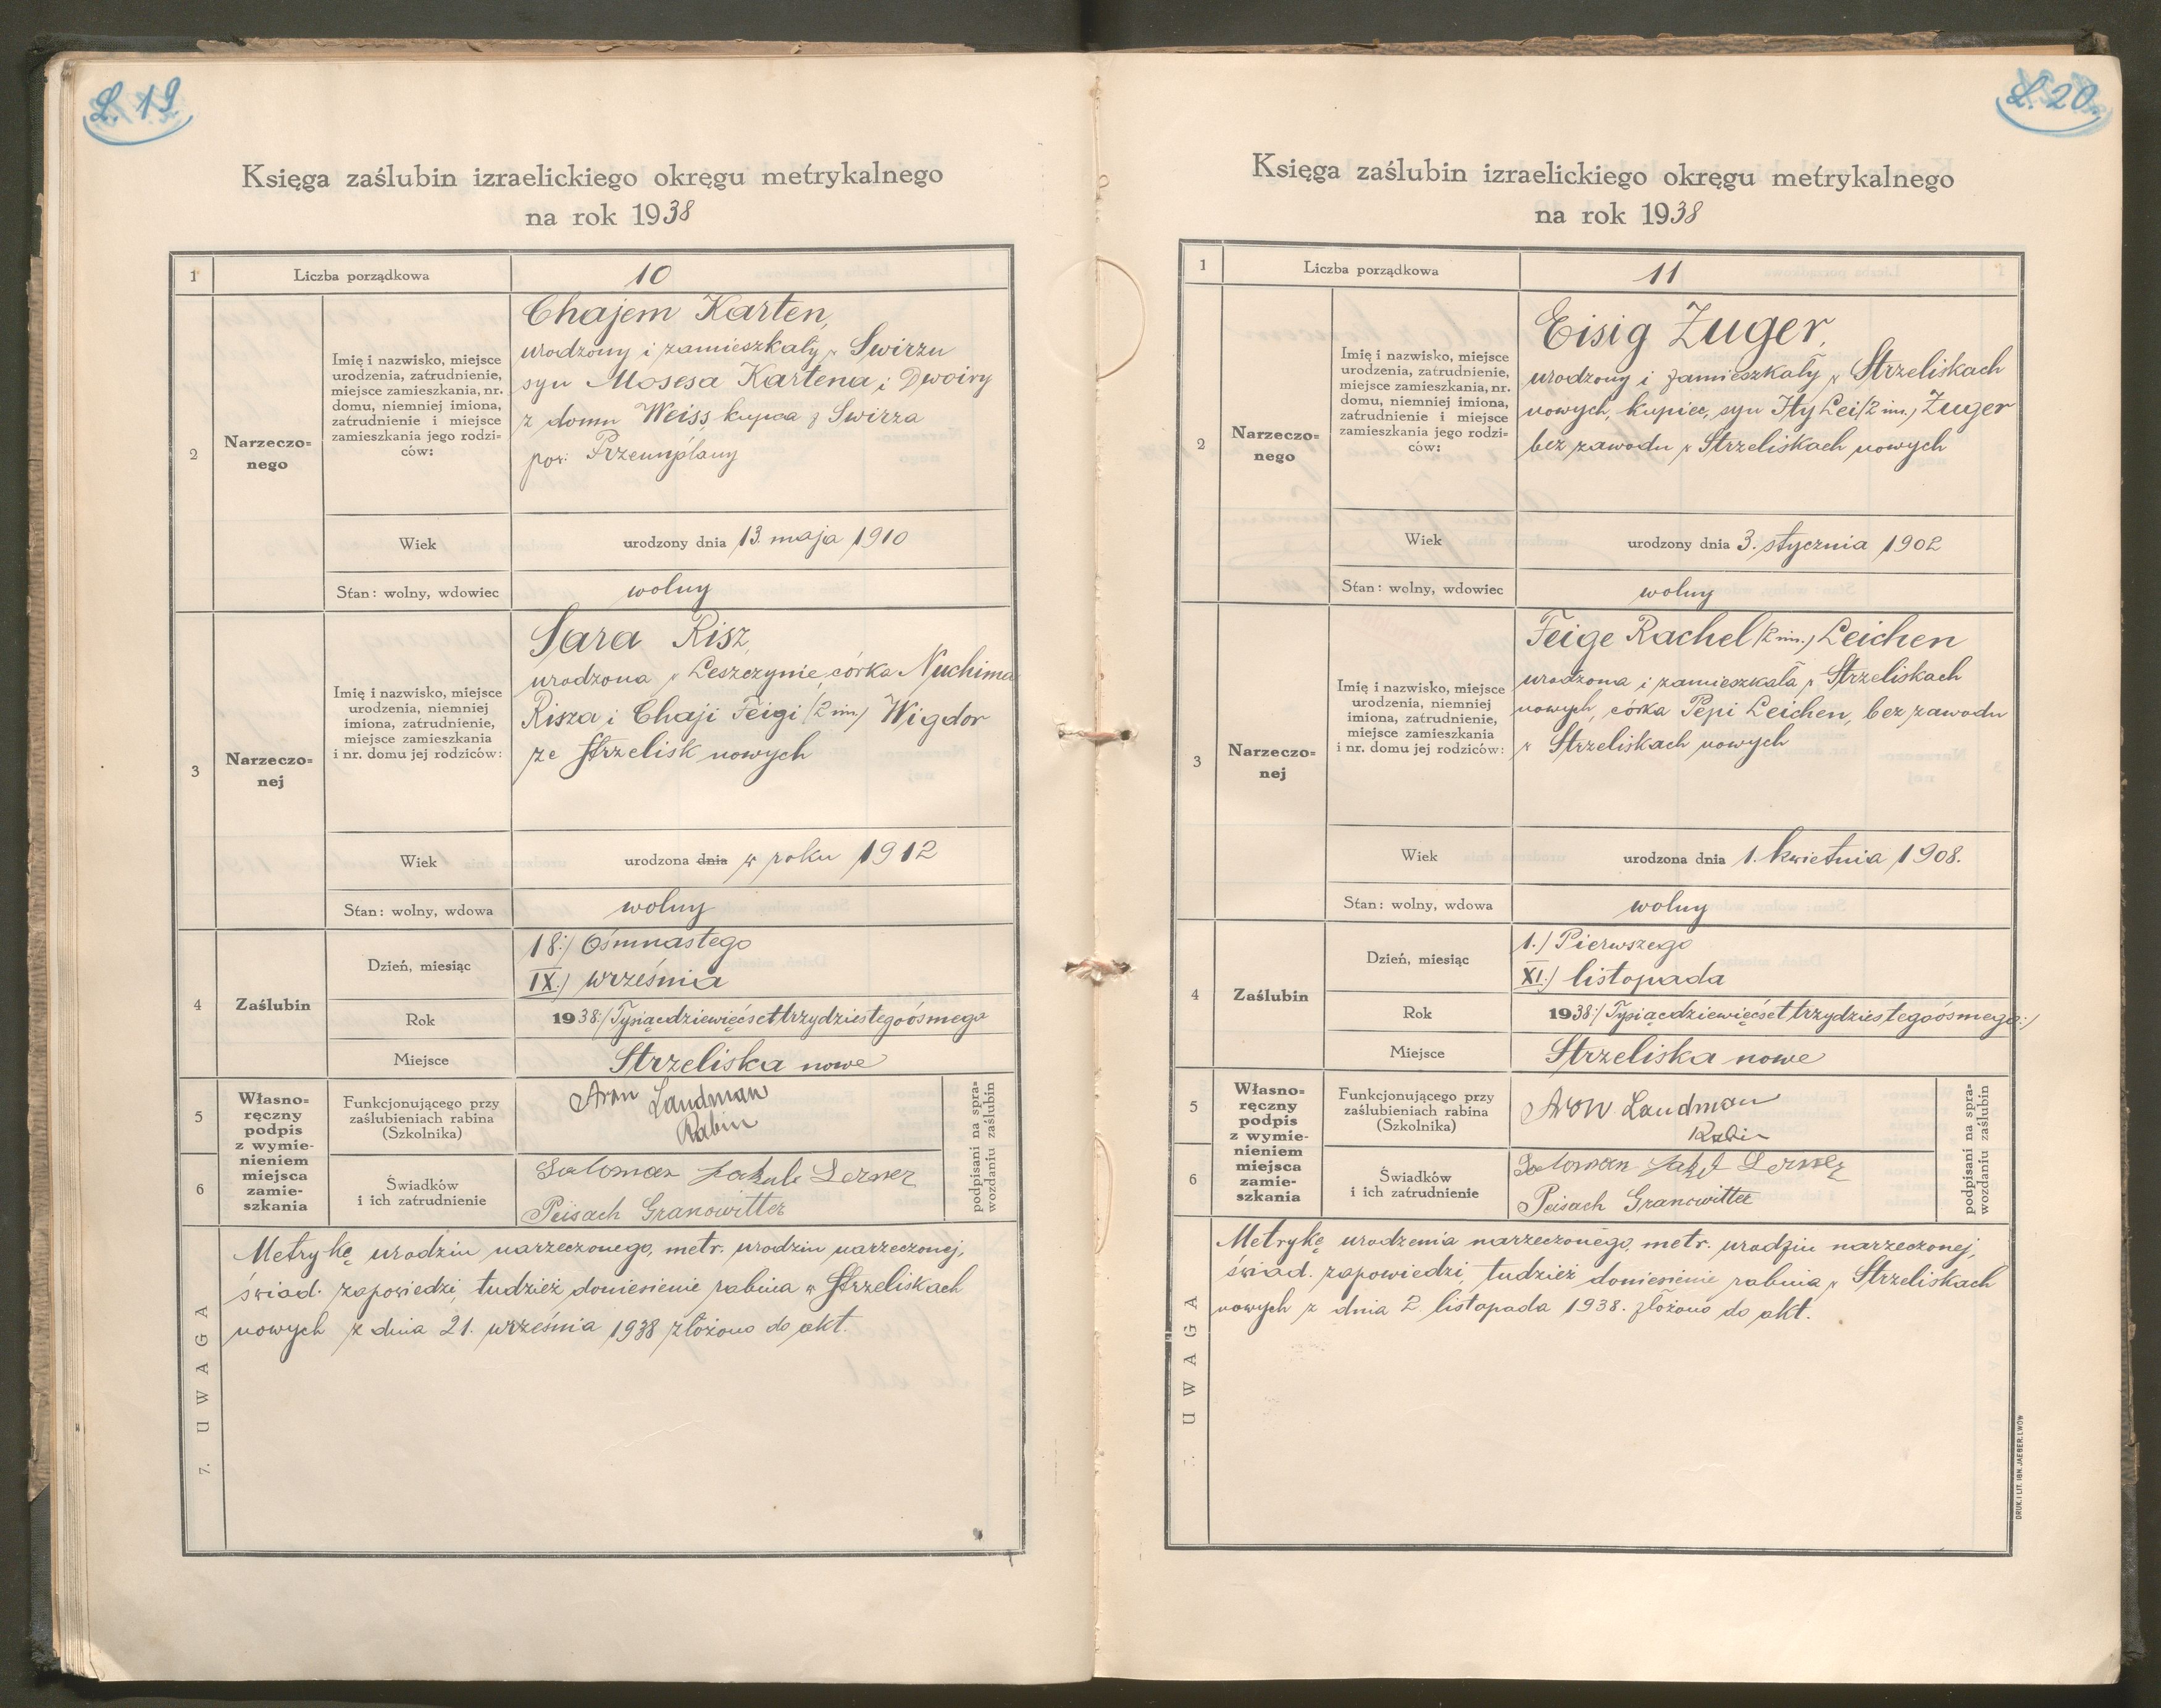 L. 19.
Księga zaślubin izraelickiego okręgu metrykalnego
na rok 1938
1
Liczba porządkowa
10
2
Narzeczo=
nego
Imię i nazwisko, miejsce
urodzenia, zatrudnienie,
miejsce zamieszkania, nr.
domu, niemniej imiona,
zatrudnienie i miejsce
zamieszkania jego rodzi=
ców:
Chajem Karten,
urodzony i zamieszkały w Swirzu
syn Mosesa Kartena i Dwoiry
z domu Weiss, kupca z Swirza
pow. Przemyślany
Wiek
urodzony dnia 13. maja 1910
Stan: wolny, wdowiec
wolny
3
Narzeczo=
nej
Imię i nazwisko, miejsce
urodzenia, niemniej
imiona, zatrudnienie,
miejsce zamieszkania
i nr. domu jej rodziców:
Sara Risz,
urodzona w Leszczynie, córka Nuchima
Risza i Chaji Feigi (2 im.) Wigdor
ze Strzelisk nowych
Wiek
urodzona dnia w roku 1912
Stan: wolny, wdowa
wolny
4
Zaślubin
Dzień, miesiąc
18:) Ośmnastego
IX.) września
Rok
1938:) Tysiącdziewięćsettrzydziestegoósmego
Miejsce
Strzeliska nowe
5
6
Własno=
ręczny
podpis
z wymie-
nieniem
miejsca
zamie-
szkania
Funkcjonującego przy
zaślubieniach rabina
(Szkolnika)
Aron Landman
Rabin
Świadków
i ich zatrudnienie
Saloman Jakub Lerner
Peisach Granowitter
podpisani na spra=
wozdaniu zaślubin
7. UWAGA
Metrykę urodzin narzeczonego, metr. urodzin narzeczonej,
świad. zapowiedzi, tudzież doniesienie rabina w Strzeliskach
nowych z dnia 21. września 1938 złożono do akt.
L. 20.
Księga zaślubin izraelickiego okręgu metrykalnego
na rok 1938
1
Liczba porządkowa
11
2
Narzeczo=
nego
Imię i nazwisko, miejsce
urodzenia, zatrudnienie,
miejsce zamieszkania, nr.
domu, niemniej imiona,
zatrudnienie i miejsce
zamieszkania jego rodzi=
ców:
Eisig Zuger,
urodzony i zamieszkały w Strzeliskach
nowych, kupiec, syn Ity Lei (2 im.) Zuger
bez zawodu w Strzeliskach nowych
Wiek
urodzony dnia 3. stycznia 1902
Stan: wolny, wdowiec
wolny
3
Narzeczo=
nej
Imię i nazwisko, miejsce
urodzenia, niemniej
imiona, zatrudnienie,
miejsce zamieszkania
i nr. domu jej rodziców:
Feige Rachel (2 im.) Leichen
urodzona i zamieszkała w Strzeliskach
nowych, córka Pepi Leichen, bez zawodu
w Strzeliskach nowych
Wiek
urodzona dnia 1. kwietnia 1908.
Stan: wolny, wdowa
wolny
4
Zaślubin
Dzień, miesiąc
1.) Pierwszego
XI.) listopada
Rok
1938:) Tysiącdziewięćsettrzydziestegoósmego:)
Miejsce
Strzeliska nowe
5
6
Własno=
ręczny
podpis
z wymie-
nieniem
miejsca
zamie-
szkania
Funkcjonującego przy
zaślubieniach rabina
(Szkolnika)
Aron Landman
Rabin
Świadków
i ich zatrudnienie
Saloman Lerner
Peisach Granowitter
podpisani na spra=
wozdaniu zaślubin
UWAGA
Metrykę urodzenia narzeczonego, metr. urodzin narzeczonej,
świad. zapowiedzi, tudzież doniesienie rabina w Strzeliskach
nowych z dnia 2. listopada 1938. złożono do akt.
DRUK. I LIT. IGN. JAEGER, LWÓW